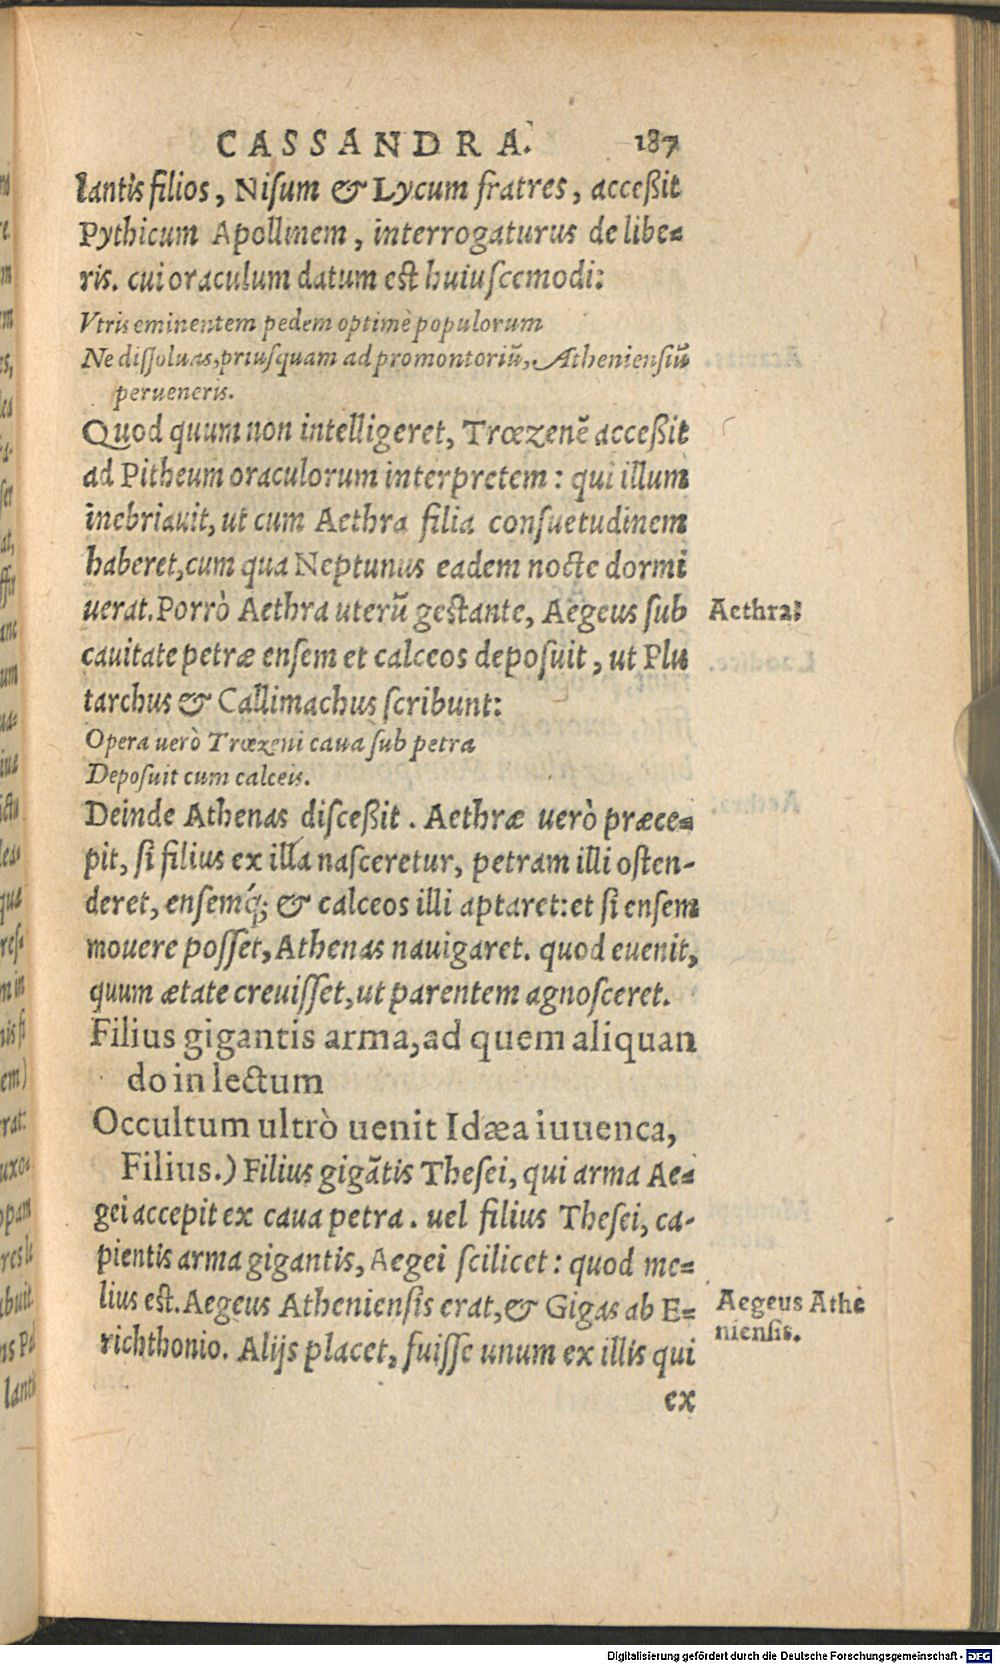 CASSANDRA. 187
lantis filios, Nisum & Lycum fratres, acceßit
Pythicum Apollinem, interrogaturus de libe=
ris. cui oraculum datum est huiuscemodi:
Vtris eminentem pedem optimè populorum
Ne dissoluas, priusquam ad promontoriū, Atheniensiū
perueneris.
Quod quum non intelligeret, Trœzenē acceßit
ad Pitheum oraculorum interpretem: qui illum
inebriauit, ut cum Aethra filia consuetudinem
haberet, cum qua Neptunus eadem nocte dormi
uerat. Porrò Aethra uterū gestante, Aegeus sub
Aethra.
cauitate petræ ensem et calceos deposuit, ut Plu
tarchus & Callimachus scribunt:
Opera uerò Trœzeni caua sub petra
Deposuit cum calceis.
Deinde Athenas disceßit. Aethræ uerò præce=
pit, si filius ex illa nasceretur, petram illi osten-
deret, ensemq́; & calceos illi aptaret: et si ensem
mouere posset, Athenas nauigaret. quod euenit,
quum ætate creuisset, ut parentem agnosceret.
Filius gigantis arma, ad quem aliquan
do in lectum
Occultum ultrò uenit Idæa iuuenca,
Filius.) Filius gigātis Thesei, qui arma Ae=
gei accepit ex caua petra. uel filius Thesei, ca-
pientis arma gigantis, Aegei scilicet: quod me=
lius est. Aegeus Atheniensis erat, & Gigas ab E=
Aegeus Athe
niensis.
richthonio. Alijs placet, fuisse unum ex illis qui
ex
Digitalisierung gefördert durch die Deutsche Forschungsgemeinschaft - DFG